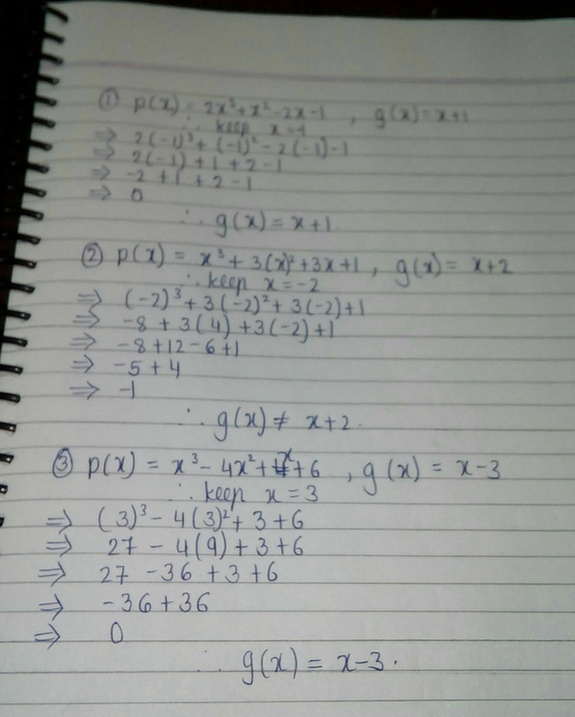 ① p(x) = 2x³+x²-2x-1 , g(x)=x+1
∴ keep x=-1
⇒ 2(-1)³+(-1)²-2(-1)-1
⇒ 2(-1)+1+2-1
⇒ -2+1+2-1
⇒ 0
∴ g(x)=x+1
② p(x) = x³+3(x)²+3x+1, g(x)= x+2
∴ keep x=-2
⇒ (-2)³+3(-2)²+3(-2)+1
⇒ -8+3(4)+3(-2)+1
⇒ -8+12-6+1
⇒ -5+4
⇒ -1
∴ g(x) ≠ x+2.
③ p(x) = x³-4x²+x+6 , g(x) = x-3
∴ keep x=3
⇒ (3)³-4(3)²+3+6
⇒ 27-4(9)+3+6
⇒ 27-36+3+6
⇒ -36+36
⇒ 0
∴ g(x) = x-3.